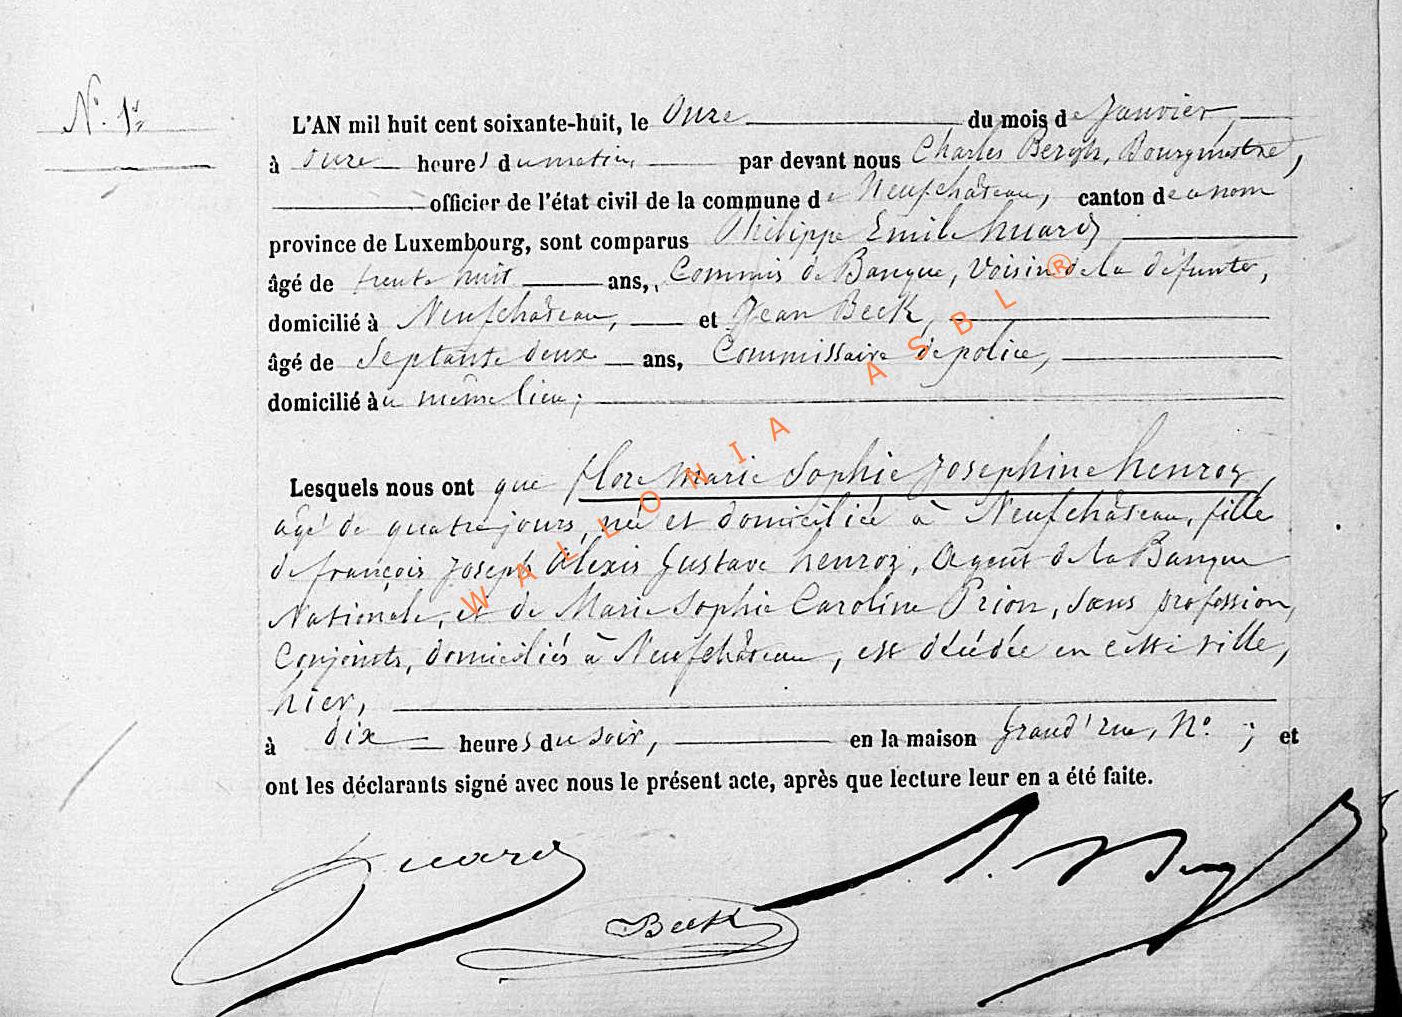 N.° 1er
L'AN mil huit cent soixante-huit, le Onze du mois de Janvier,
à onze heures du matin, par devant nous Charles Bergh, Bourgmestre,
officier de l'état civil de la commune de Neufchâteau, canton de ce nom
province de Luxembourg, sont comparus Philippe Emile huard
âgé de trente huit ans, Commis de Banque, Voisin de la défunte,
domicilié à Neufchâteau, et Jean Beck,
âgé de Septante deux ans, Commissaire de police,
domicilié au même lieu;
Lesquels nous ont que flore Marie Sophie Josephine henroz,
âgé de quatre jours, née et domiciliée à Neufchâteau, fille
de françois Joseph Alexis Gustave henroz, Agent de la Banque
Nationale, et de Marie Sophie Caroline Prion, Sans profession,
Conjoints, domiciliés à Neufchâteau, est décédée en cette ville,
hier,
à dix heures du soir, en la maison Grand'rue, N.° ; et
ont les déclarants signé avec nous le présent acte, après que lecture leur en a été faite.
Huard
Beck
WALLONIA ASBL ®